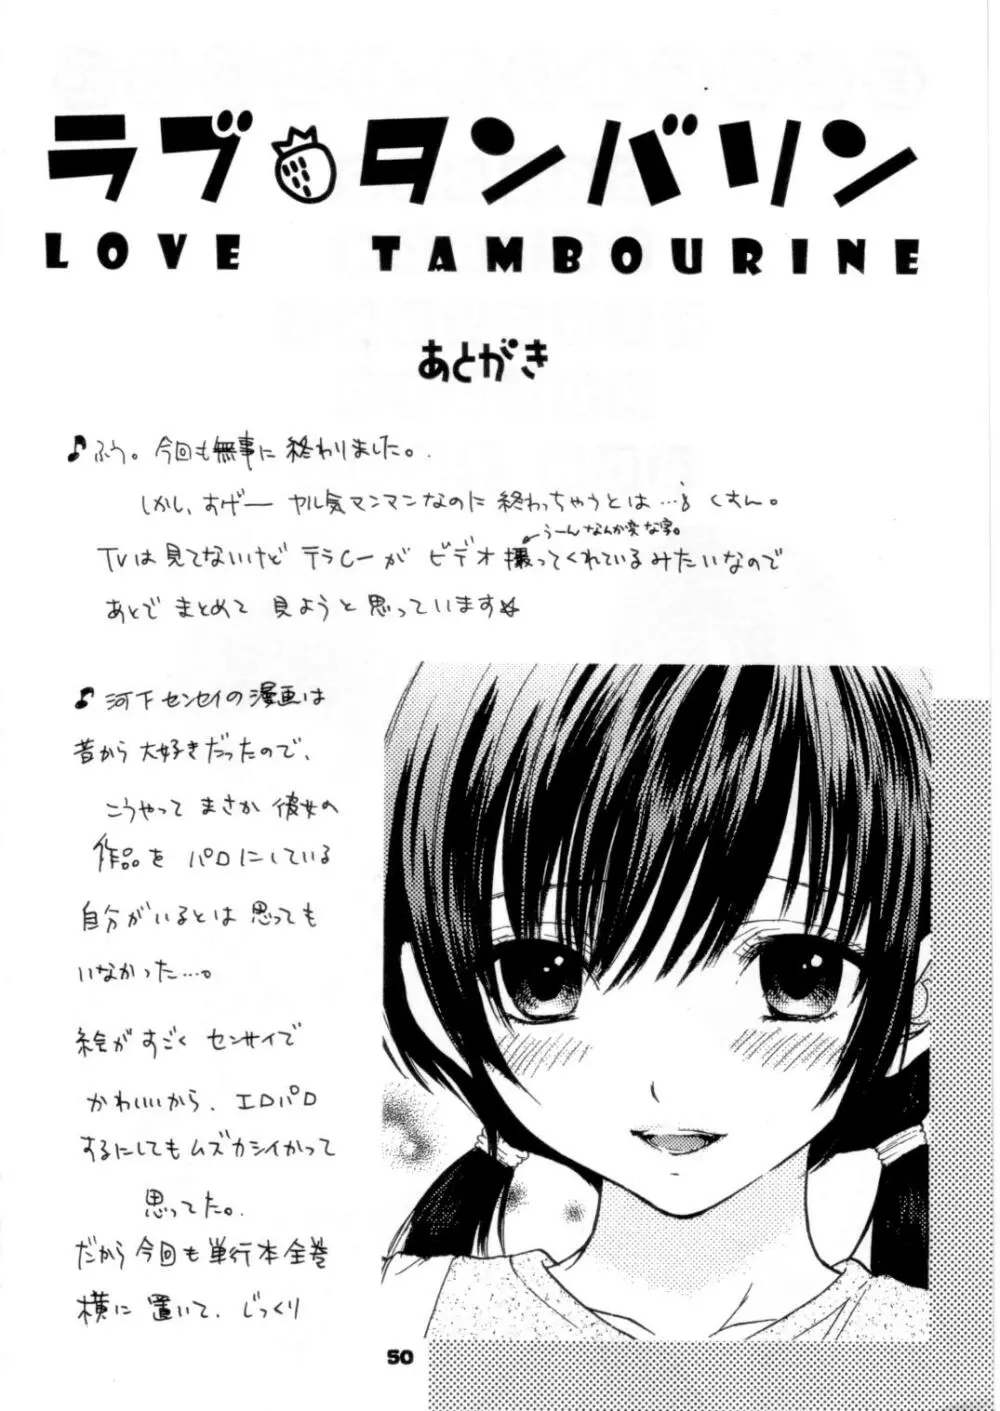 ラブ タンバリン
LOVE TAMBOURINE
あとがき
♪ふう。今回も無事に終わりました。
しかし、すげー ヤル気マンマンなのに終わっちゃうとは…。くすん。
うーんなんか変な字。
TVは見てないけど テラCーが ビデオ 撮ってくれているみたいなので
あとで まとめて 見ようと思っています☆
♪河下センセイの漫画は
昔から 大好きだったので、
こうやって まさか 彼女の
作品を パロにしている
自分がいるとは 思っても
いなかった…。
絵が すごく センサイで
かわいいから、エロパロ
するにしてもムズカシイかって
思ってた。
だから今回も単行本全巻
横に 置いて、じっくり
50